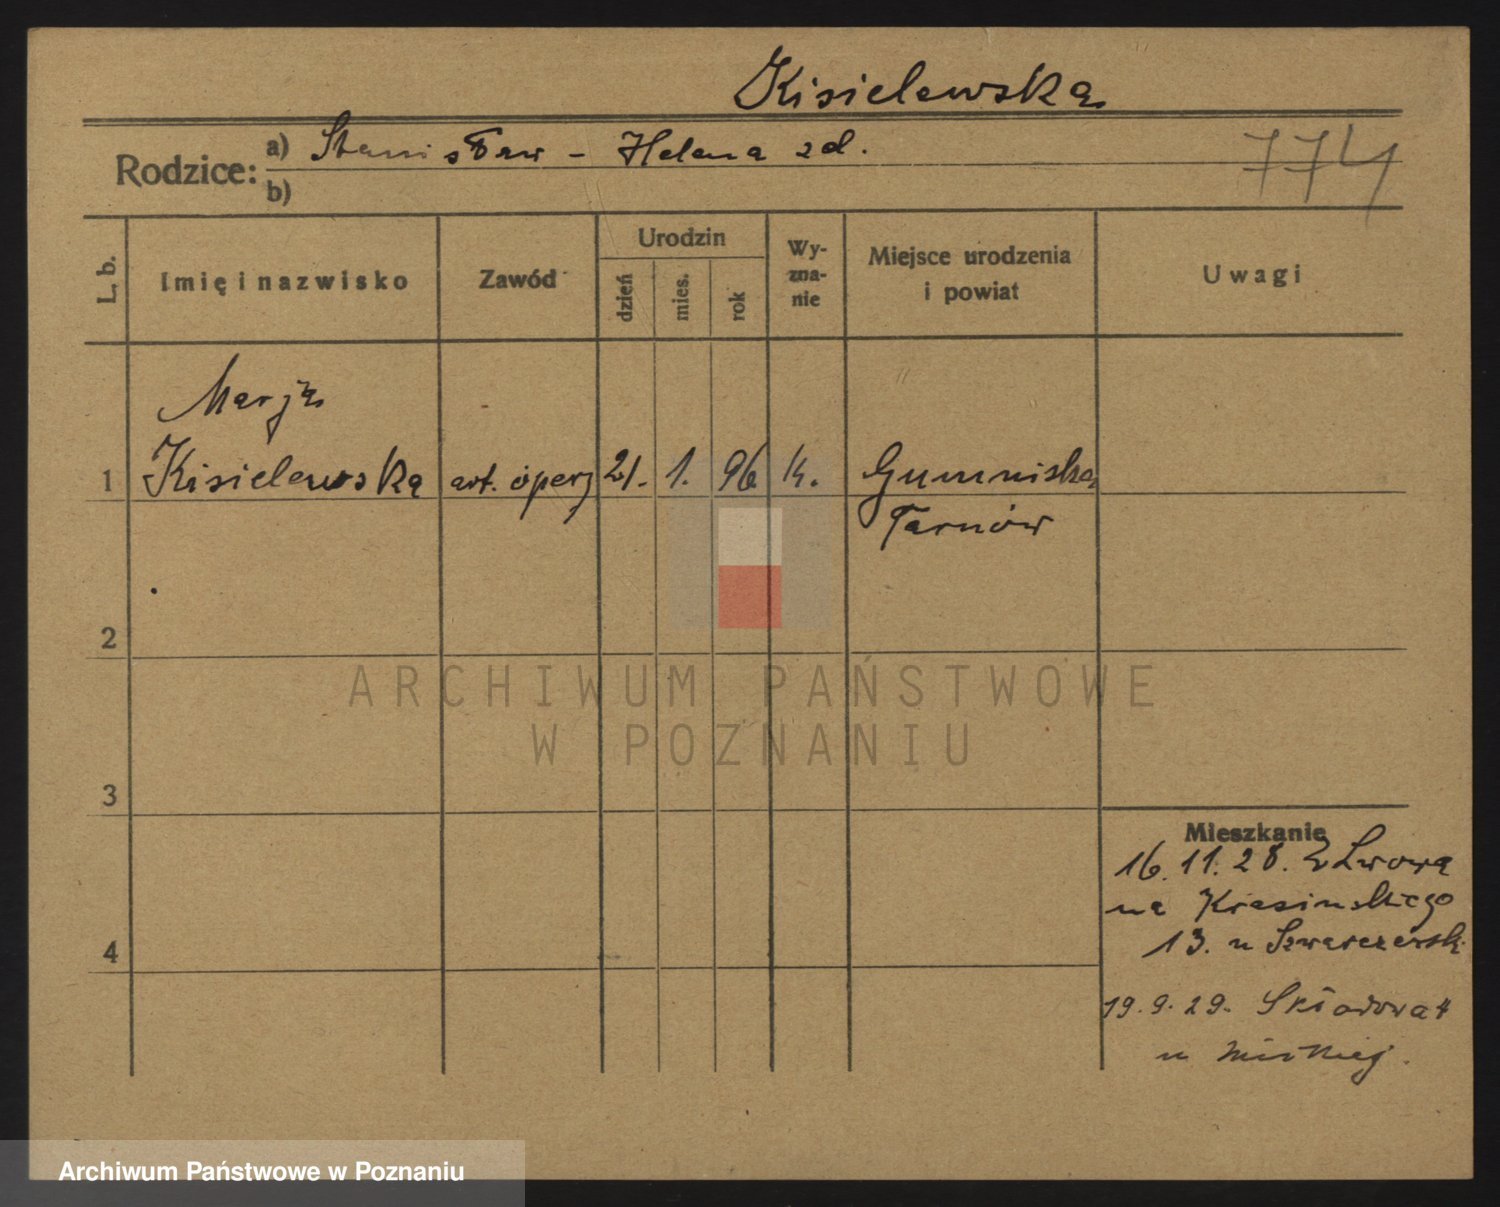 Kisielewska
Rodzice: a) Stanisław - Helena zd.
b)
774
L. b.
Imię i nazwisko
Zawód
Urodzin
dzień
mies.
rok
Wy-
zna-
nie
Miejsce urodzenia
i powiat
Uwagi
Marja
1 Kisielewska art. opery 21. 1. 96 k. Gumniska
Tarnów
2
3
4
Mieszkanie
16.11.28. z Lwowa
na Krasińskiego
13. u
19.9.29. Składowa 4
u
ARCHIWUM PAŃSTWOWE
W POZNANIU
Archiwum Państwowe w Poznaniu